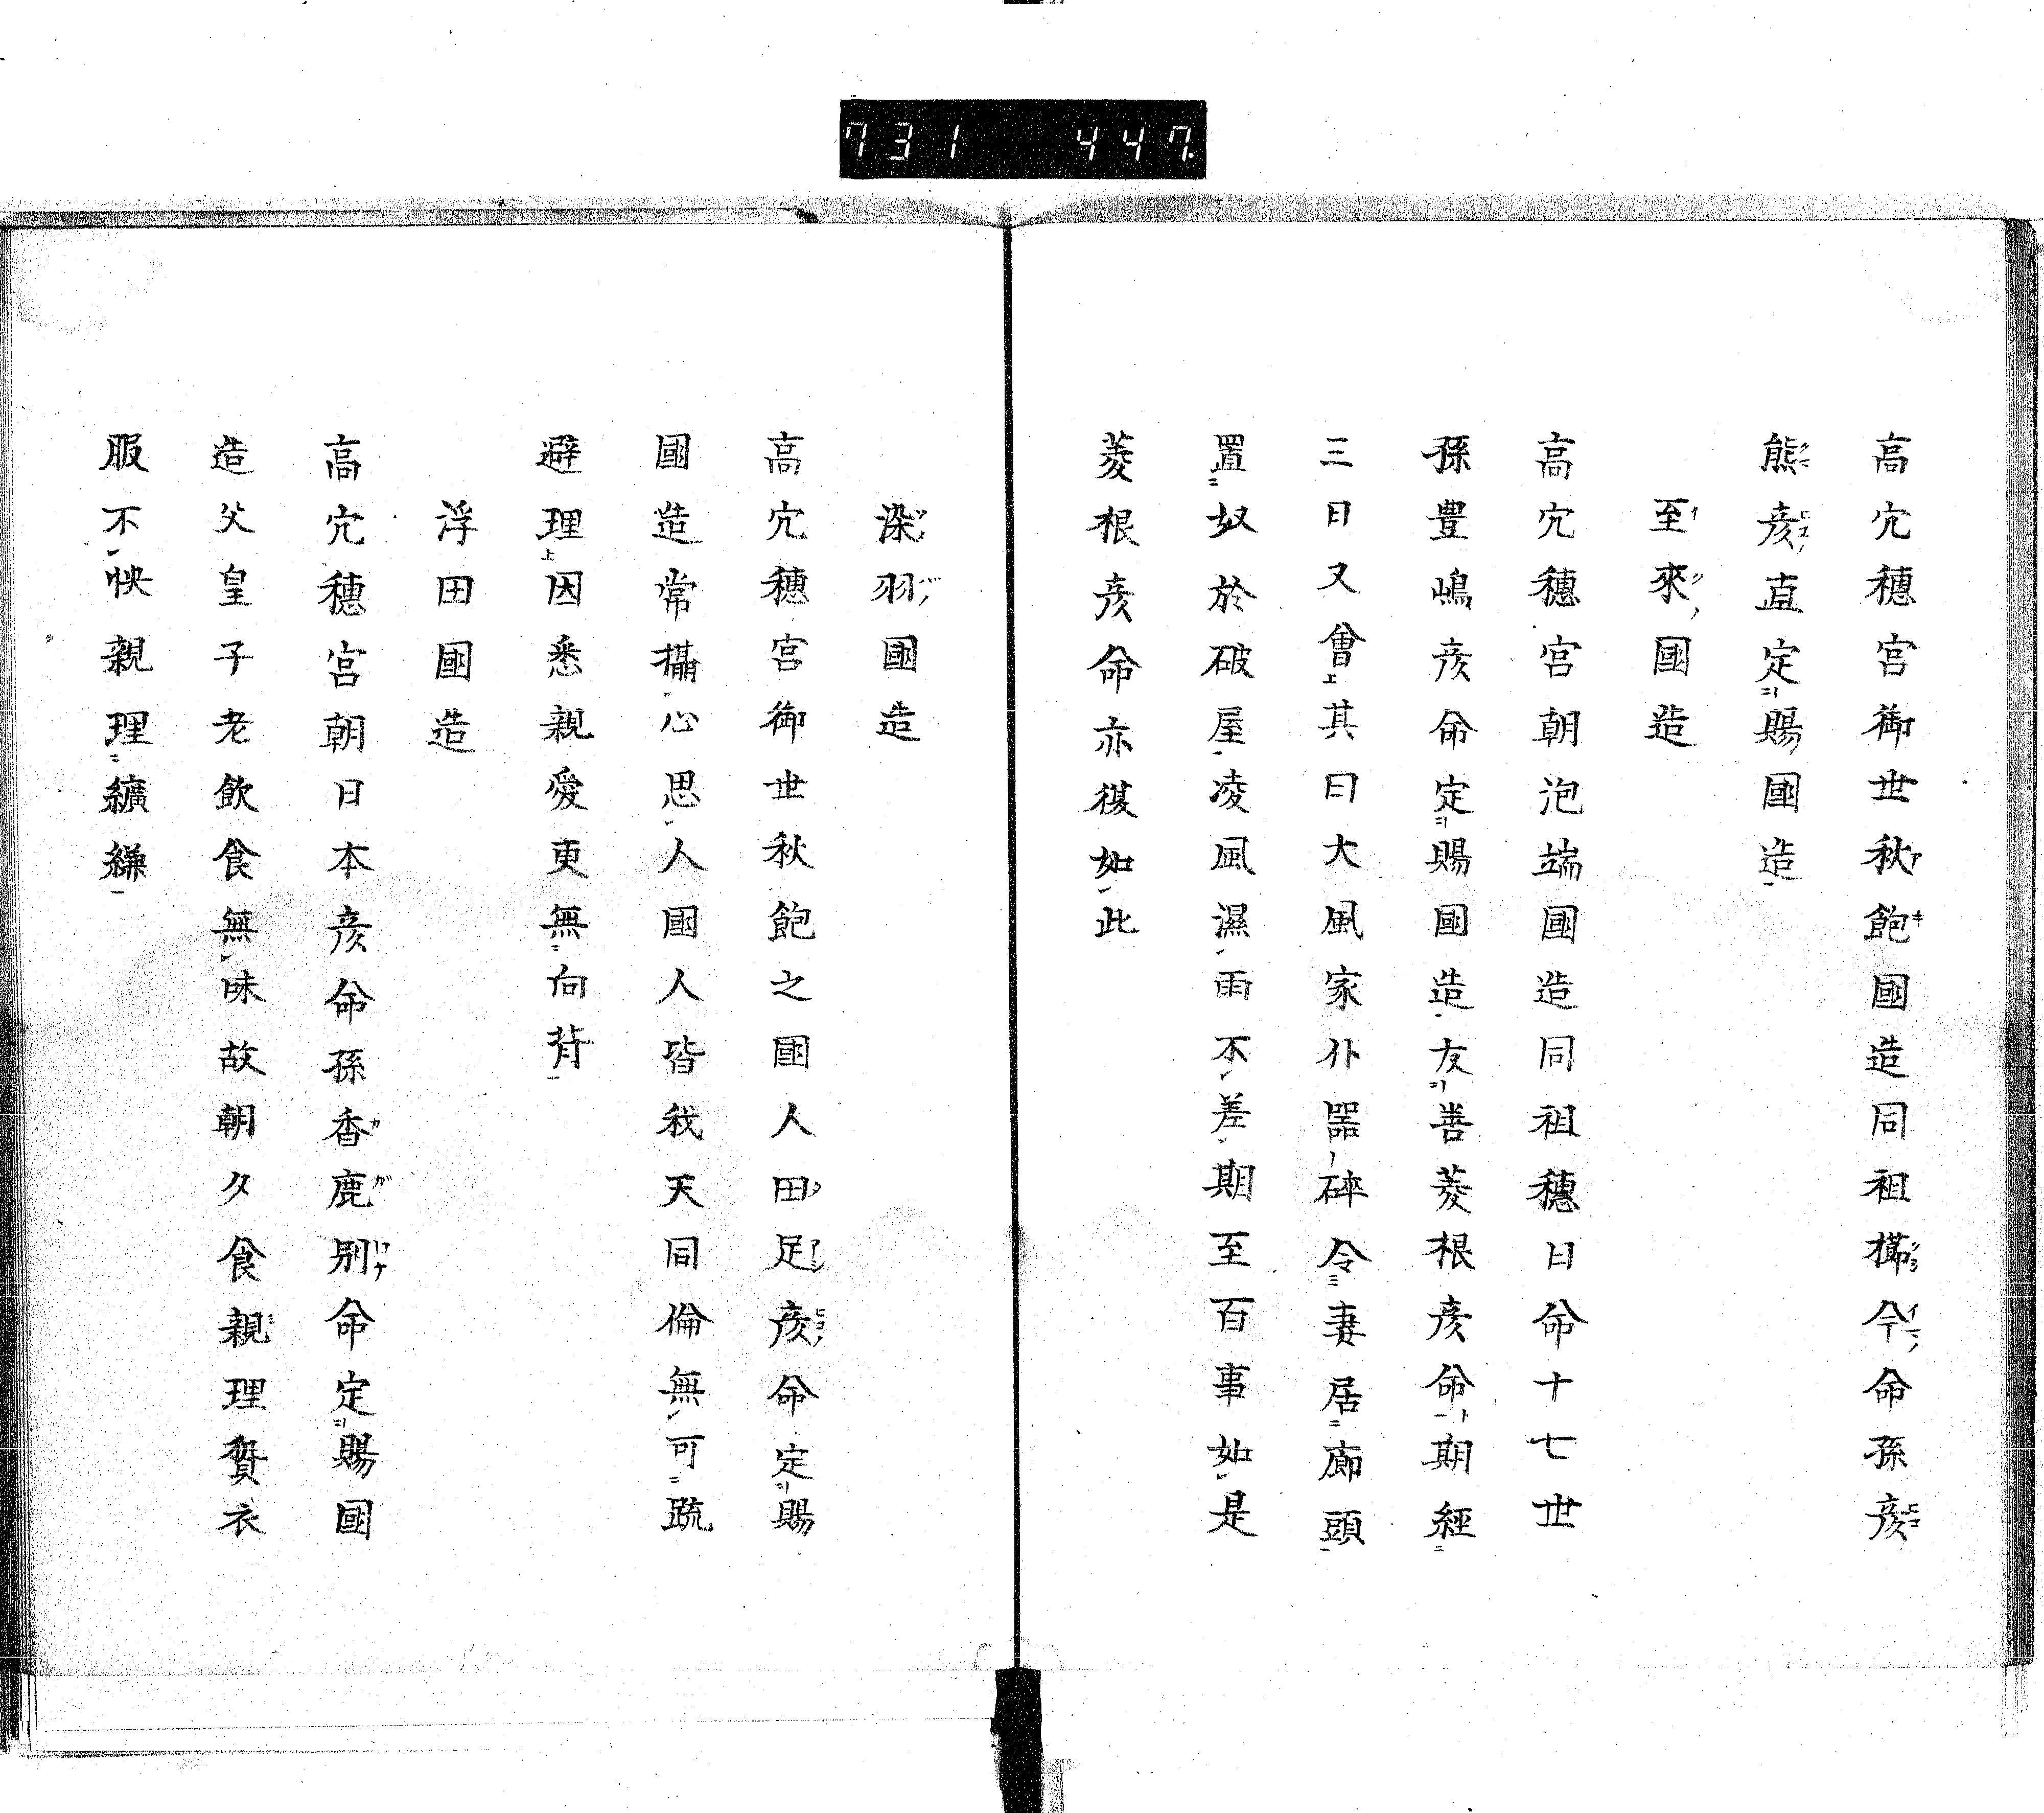 731 447
高宂穗宮御世秋飽國造同祖櫛今命孫彦
熊彦直定賜國造
至來國造
高宂穗宮朝泡端國造同祖穗日命十七世
孫豊嶋彦命定賜國造友善菱根彦命期經
三日又會其曰大風家仆器碎令妻居廊頭
置奴於破屋凌風濕雨不差期至百事如是
菱根彦命亦復如此
染羽國造
高宂穗宮御世秋飽之國人田足彦命定賜
國造常攝心思人國人皆我天同倫無可疏
避理因悉親愛更無向背
浮田國造
高宂穗宮朝日本彦命孫香鹿別命定賜國
造父皇子老飲食無味故朝夕食親理贄衣
服不怏親理纊縑